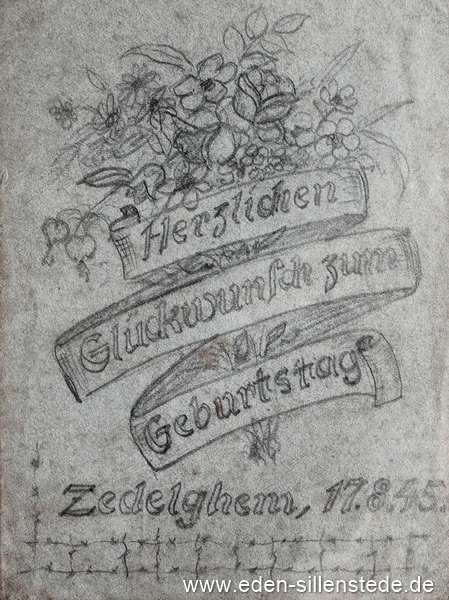 Herzlichen
Glückwunsch zum
Geburtstag
Zedelghem, 17.8.45.
www.eden-sillenstede.de